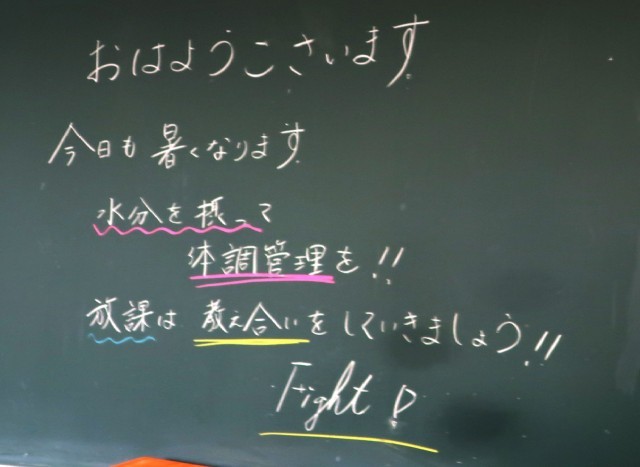 おはようございます
今日も暑くなります
水分を摂って
体調管理を!!
放課は教え合いをしていきましょう!!
Fight